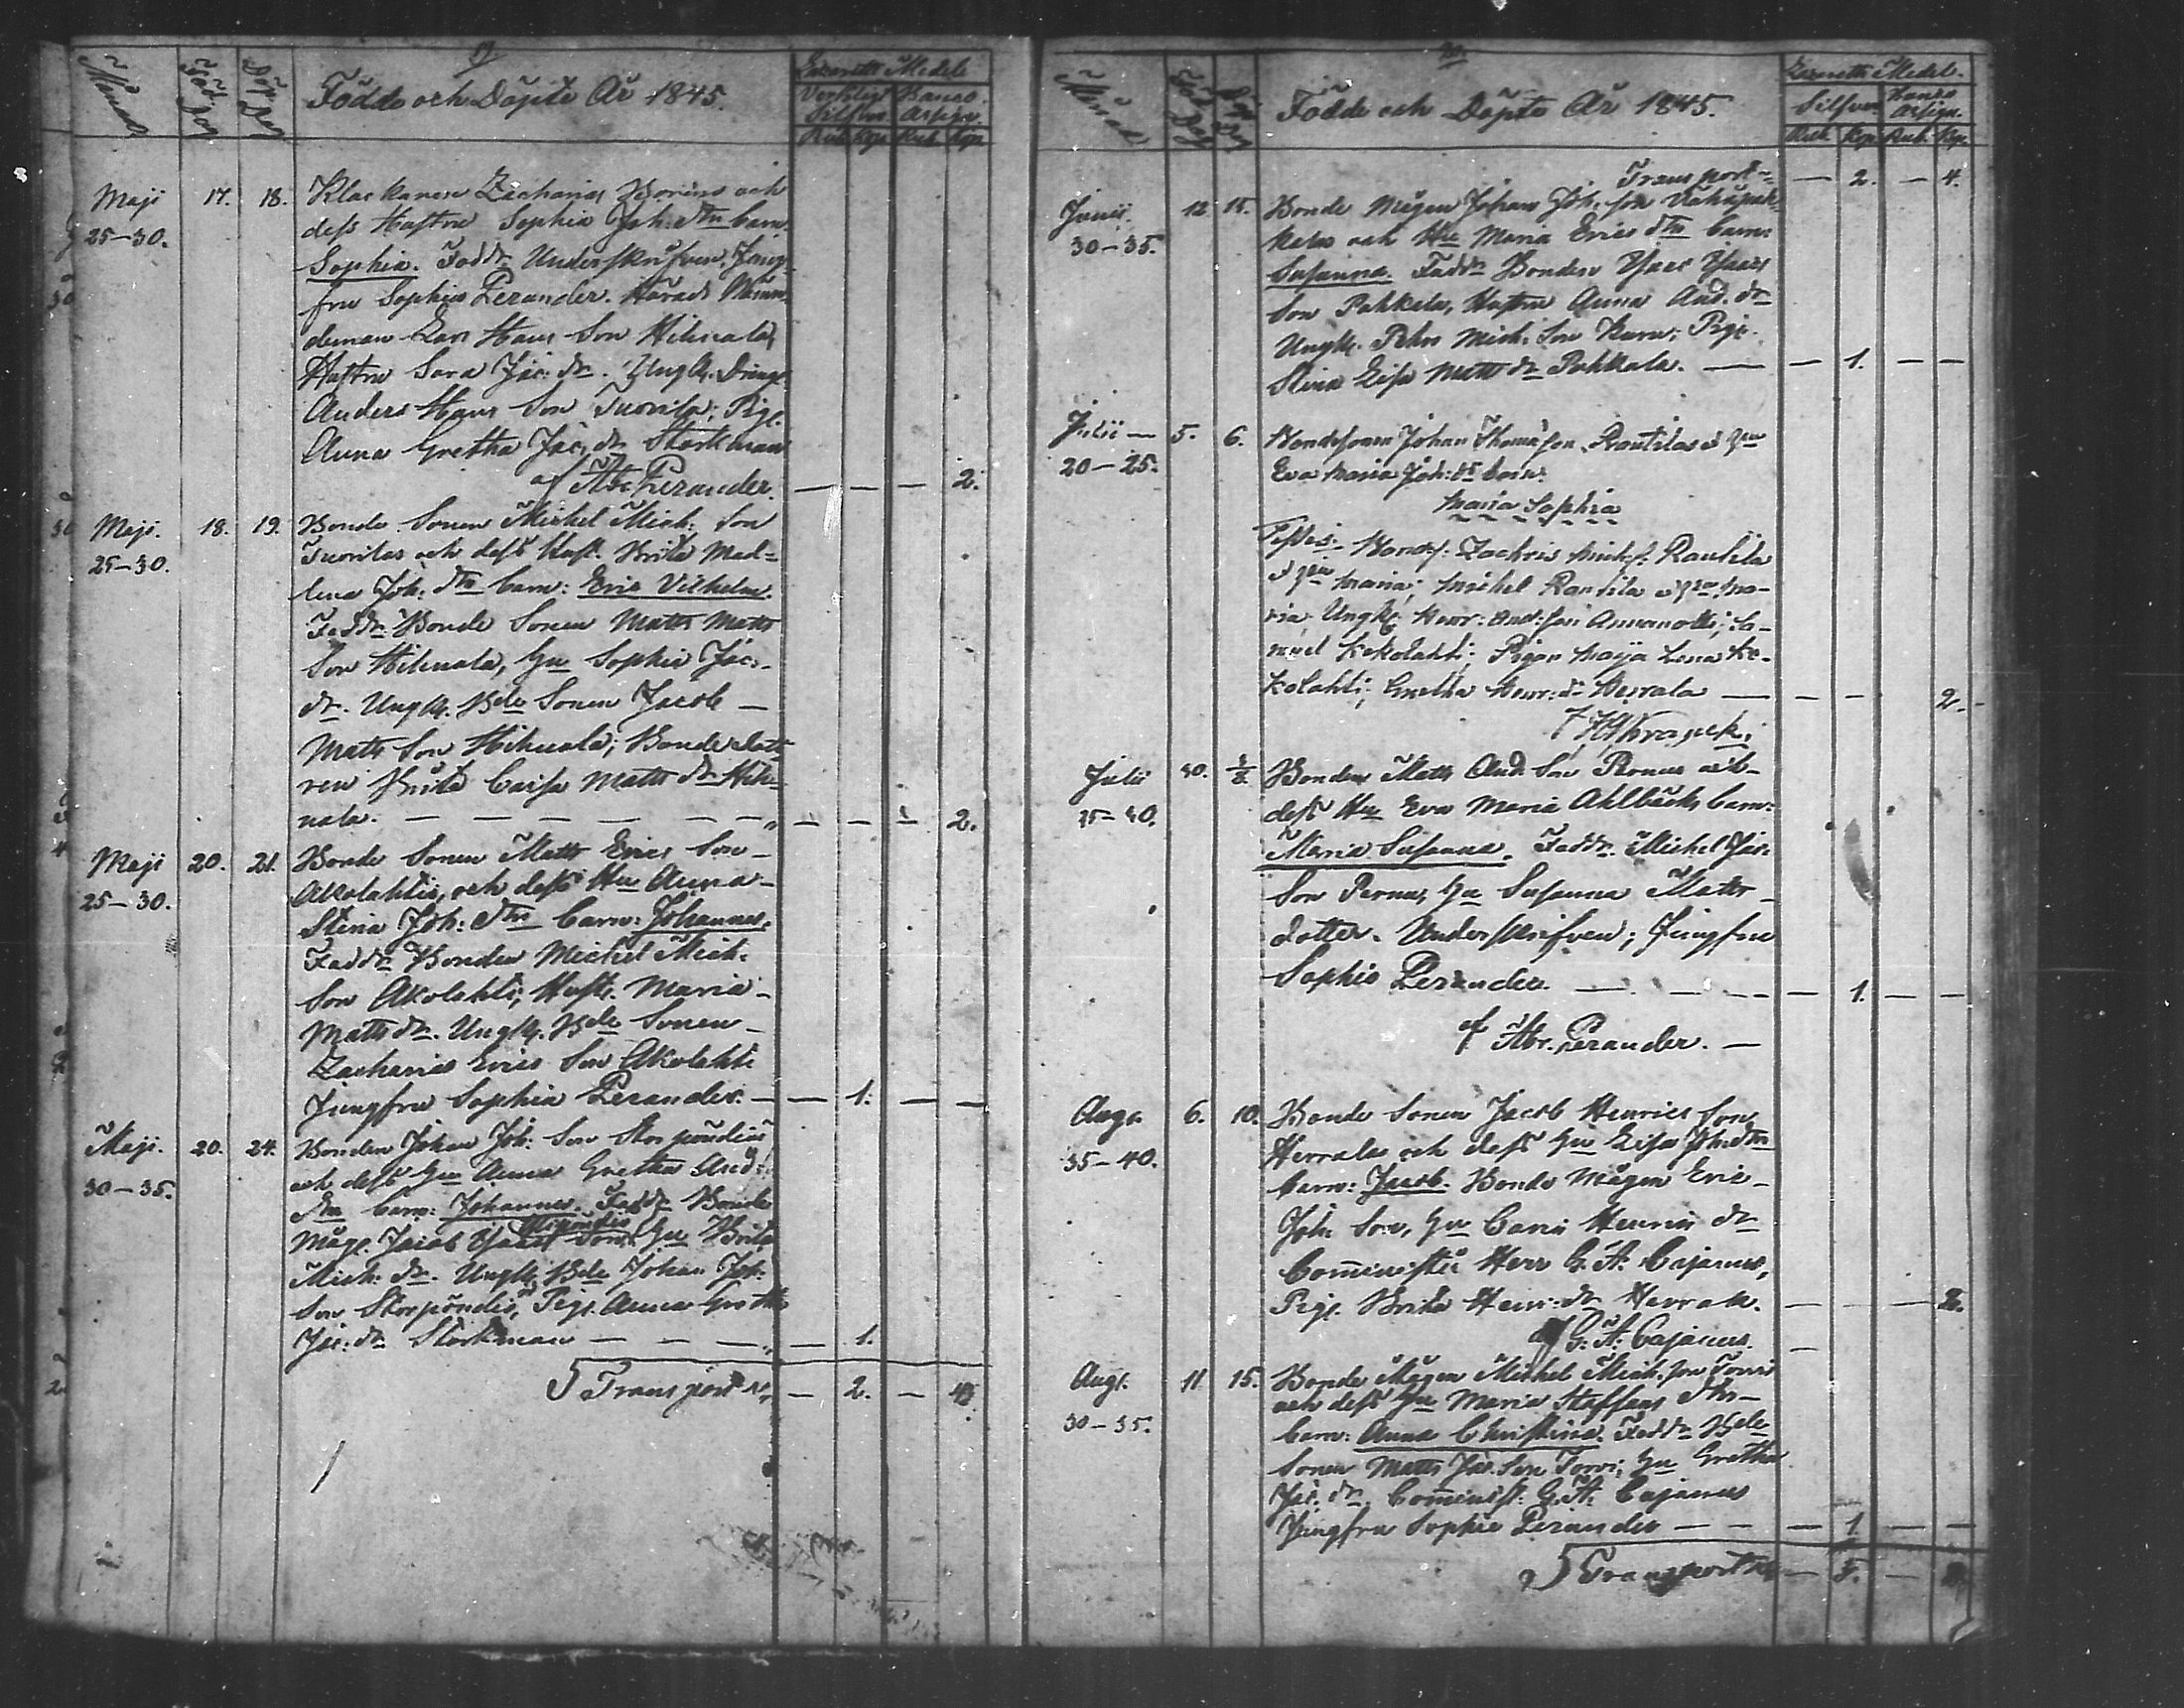 19.
Månad
Föd. Dag
Döp. Dag
Födde och Döpte År 1845.
Lazaretts Medel
Verkligt Silfver
Banco Assign.
Rub. Kop. Rub. Kop.
Maji 17. 18. Klockaren Zacharias och
25–30. dess Hustru Sophia Joh: dtrs barn
Sophia. Faddr Underskrifven, Jung-
fru Sophia Perander. Härads Näm-
deman Hans Son Hihnala,
Hustru Sara Jac: dr. Ungk. Dreng.
Anders Hans Son Tuorila; Pig.
Anna Gretha Jac: dr Storkman
af Abr. Perander. — — — 2.
Maji. 18. 19. Bonde Sonen Michel Mich: Son
25–30. Tuorilas och dess Hust. Brita Mad-
lena Joh: dtrs barn: Eric Vilhelm.
Faddr Bonde Sonen Matts Matts
Son Hihnala, Hu Sophia Jac:
dr. Ungk. Bde Sonen Jacob —
Matts Son Hihnala; Bonde dott-
ren Brita Caisa Matts dr Hih-
nala. — — — — — — — — — 2.
Maji 20. 21. Bonde Sonen Matts Erics Son
25–30. Akolahtis, och dess Hu Anna
Stina Joh: dtrs barn: Johannes.
Faddr Bonden Michel Mich:
Son Akolahti; Hustr. Maria
Matts dr. Ungk. Bde Sonen
Zacharias Erics Son Akolahti
Jungfru Sophia Perander. — — 1. — —
Maji. 20. 24. Bonden Johan Joh: Son Storpöndiös
30–35. och dess Hu Anna Gretha And:
dtrs barn: Johannes. Faddr Bonde
Måg. Jacob Son, Hu Brita
Mich: dr. Ungk. Bde Johan Joh:
Son Storpöndiö, Pig. Anna Greth
Jac: dr Storkman — — — — 1.
Transport — 2. — 4.
20.
Månad
Föd. Dag
Döp. Dag
Födde och Döpte År 1845.
Lazaretts Medel.
Silfver
Banco Assign.
Rub. Kop. Rub. Kop.
Transport — — 2. — 4.
Junii 12. 15. Bonde Mågen Johan Joh: Son
30–35. och Hu Maria Erics dtrs barn:
Susanna. Faddr Bonden Isaac Isaacs
Son Pahkala, Hustru Anna And. dr
Ungk. Pehr Mich: Son Pig.
Stina Lisa Matts dr Pahkala. — — 1. — —
Julii — 5. 6. Bondesonen Johan Thomasson Rautilas
20–25. Eva Maria Joh: dr barn:
Maria Sophia
Testes: Bondes. Zachris Michs: Rautila
Maria; Michel Rautila Ma-
ria Ungk: Henr: And: son Annanolli; Sa-
muel Kekolahti; Pigor Maija Lena Ke-
kolahti; Gretha Henr: dr Herrala — — — 2.
Julii 30. Bonden Matts And. Son Pernus och
35–40. dess Hu Eva Maria Ahlbäcks barn:
Maria Susanna. Faddr. Michel Jac:
Son Pernu, Hu Susanna Matts
dotter. Underskrifven; Jungfru
Sophia Perander. — — — — 1. — —
af Abr. Perander. —
Aug. 6. 10. Bonde Sonen Jacob Henrics Son
35–40. Herralas och dess Hu Lisa Joh: dtrs
barn: Jacob. Bonde Mågen Eric
Joh: Son, Hu Carin Henrics dr
Comministr. Herr G. A. Cajanus,
Pig. Brita Henr: dr Herrala. — — — 2.
af G. A. Cajanus.
Aug. 11 15. Bonde Mågen Michel Mich. son Torvis
30–35. och dess Hu Maria Staffans dtrs
barn: Anna Christina. Faddr Bde
Sonen Matts Jac. Son Torvi, Hu Gretha
Jac: dr. Comminist. G. A. Cajanus
Jungfru Sophia Perander — — — 1. — —
Transport — 5. —